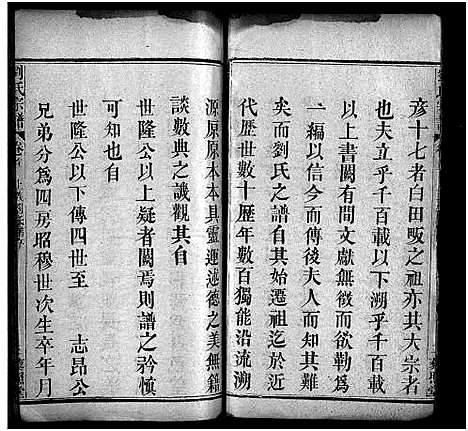 彥十七者白田畈之祖亦其大宗者
也夫立乎千百載以下溯乎千百
載以上書闕有間文獻無徵而欲勒爲
一編以信今而傳後夫人而知其難
矣而劉氏之譜自其始遷祖迄今
代歷世數十歷年數百獨能沿流溯
源原原本本具靈運述德之美無籍
談數典之譏觀其自
世隆公以上疑者闕焉則譜之矜愼
可知也自
世隆公以下傳四世至　志昂公
兄弟分爲四房昭穆世次生卒年月
劉氏宗譜